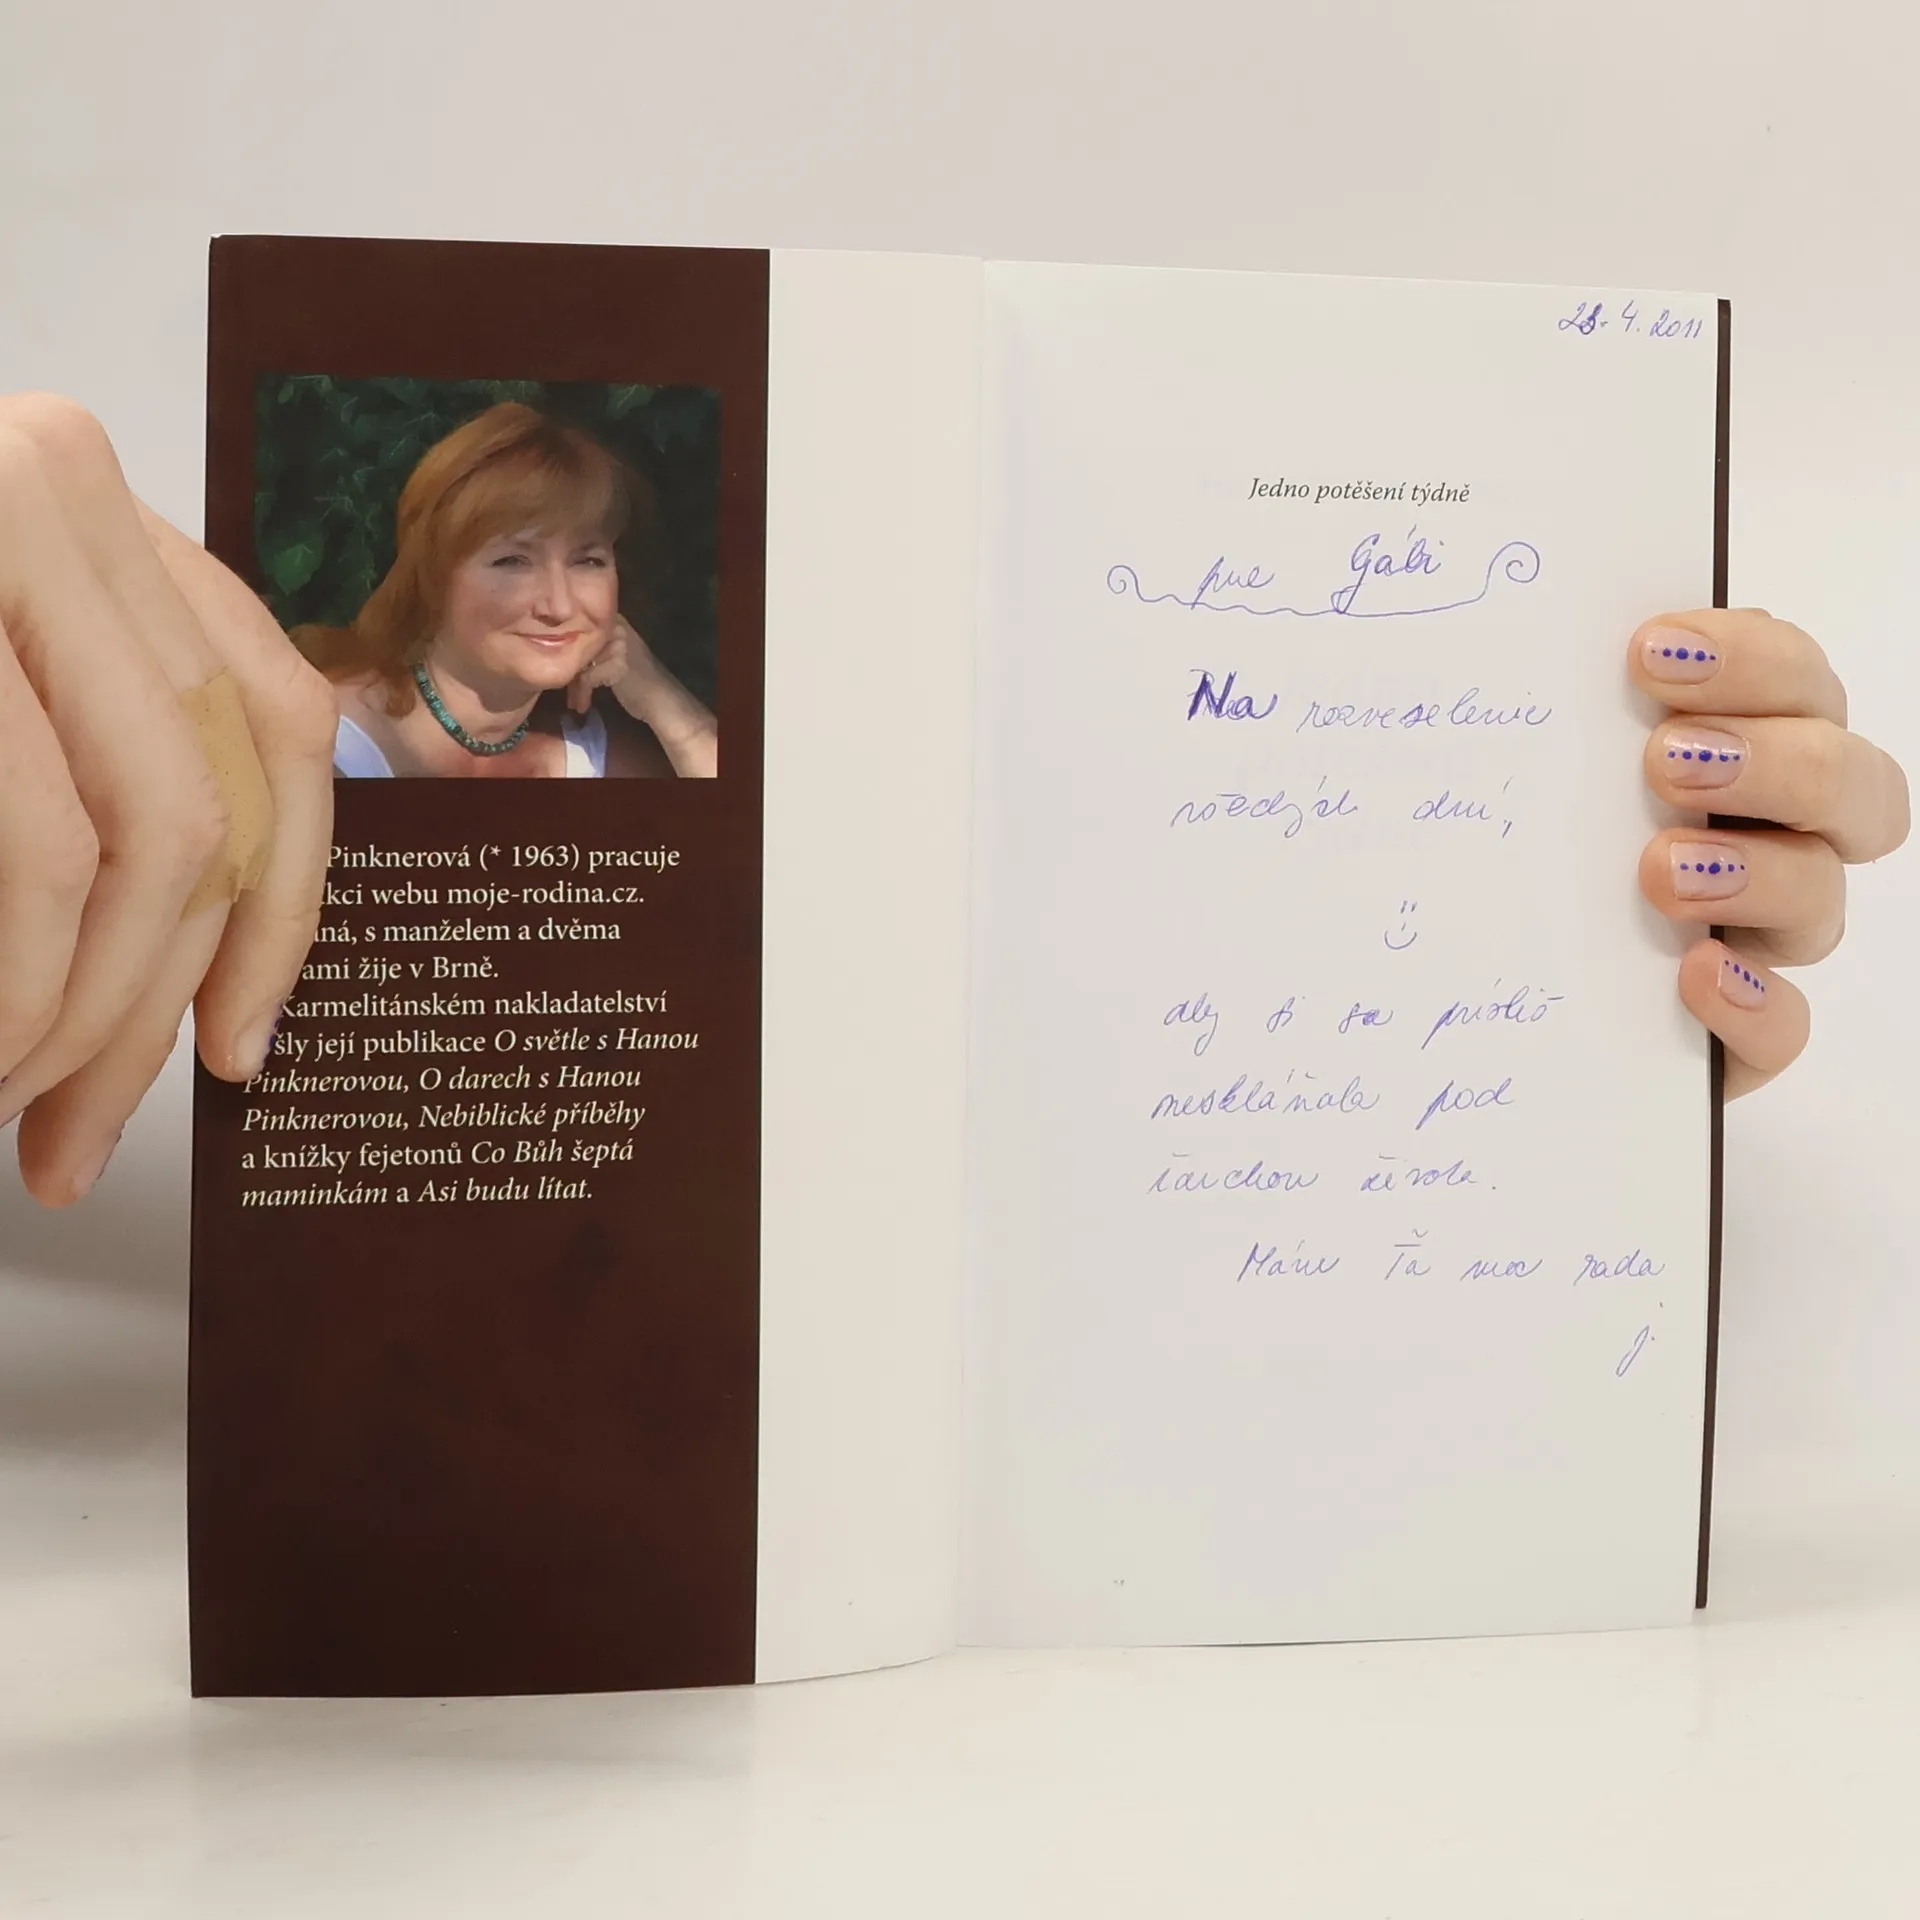 Pinknerová (* 1963) pracuje
kci webu moje-rodina.cz.
ná, s manželem a dvěma
ami žije v Brně.
Karmelitánském nakladatelství
šly její publikace O světle s Hanou
Pinknerovou, O darech s Hanou
Pinknerovou, Nebiblické příběhy
a knížky fejetonů Co Bůh šeptá
maminkám a Asi budu lítat.
28. 4. 2011
Jedno potěšení týdně
pre Gábi
Na rozveselenie
všedných dní,
aby si sa príliš
neskláňala pod
ťarchou života.
Mám Ťa moc rada
J.